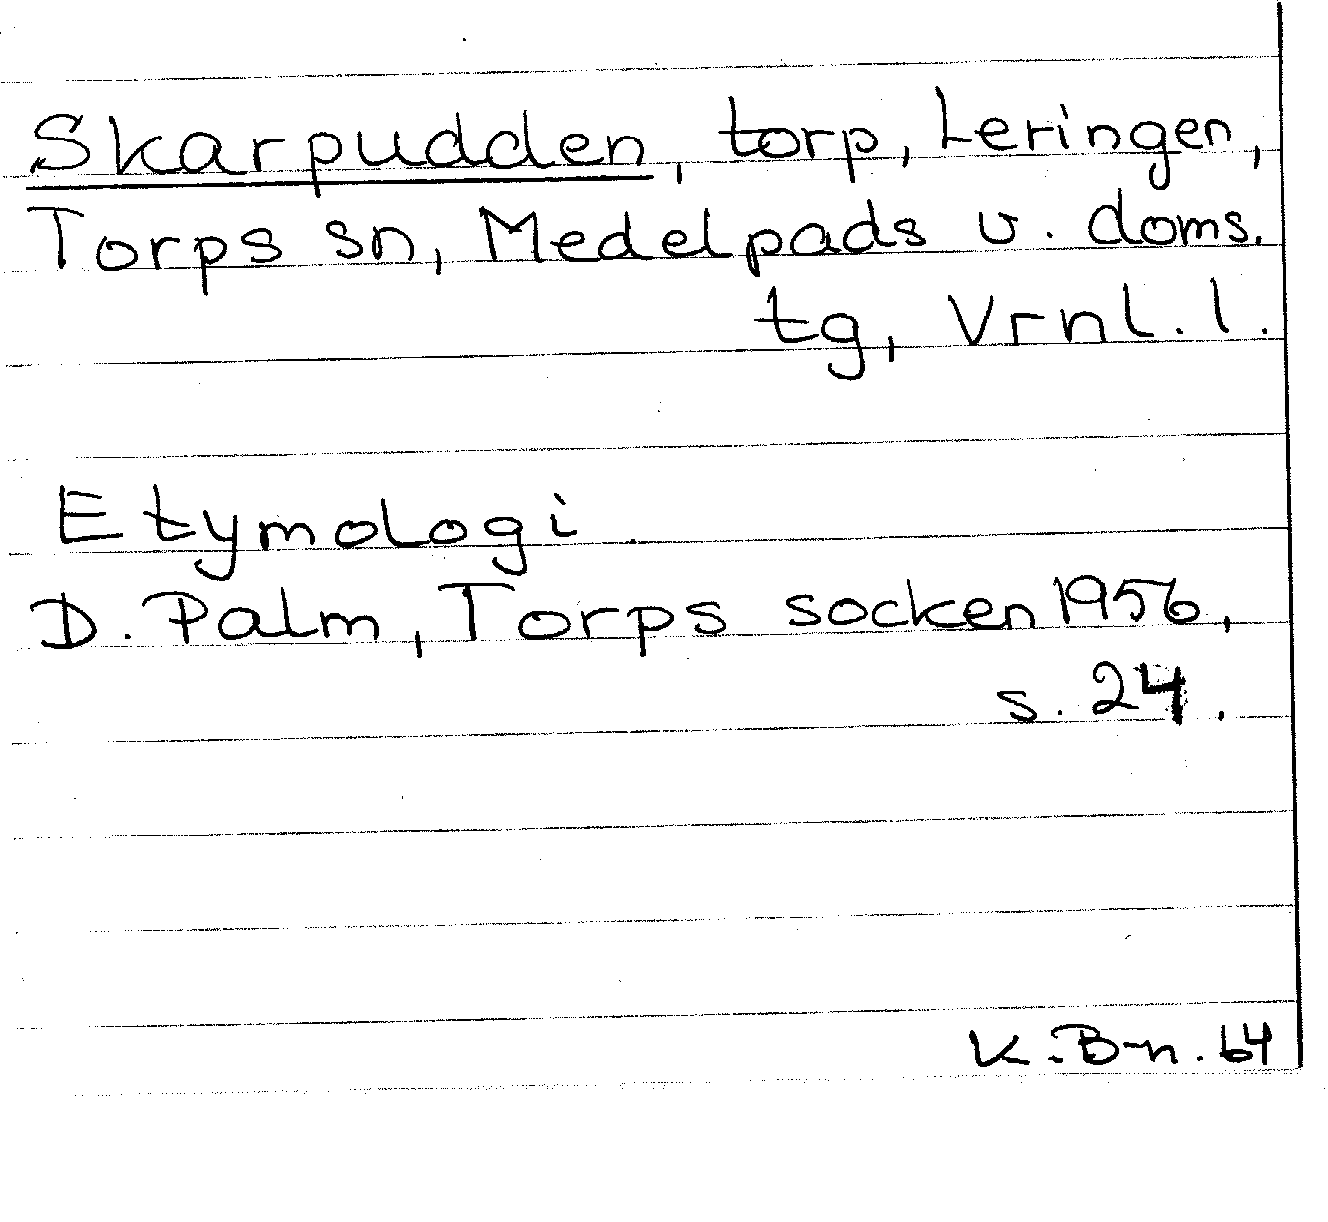 Skarpudden, torp, Leringen,
Torps sn, Medelpads v. doms.
tg, Vrnl. l.
Etymologi.
D. Palm, Torps socken 1956,
s. 24.
K. B-n. 64